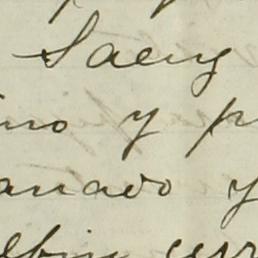 Saenz
ino y p
anado y